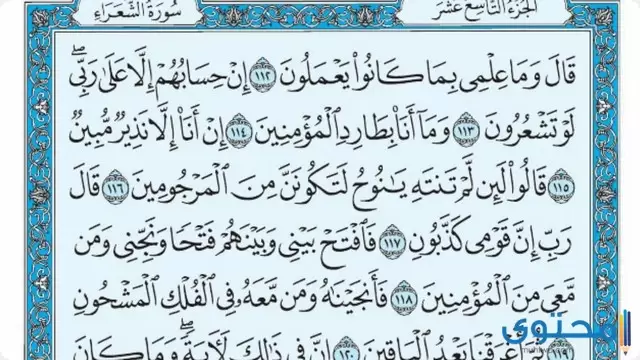 سُورَةُ الشُّعَرَاءِ
الجُزْءُ التَّاسِعَ عَشَرَ
قَالَ وَمَا عِلْمِي بِمَا كَانُوا۟ يَعْمَلُونَ ١١٢ إِنْ حِسَابُهُمْ إِلَّا عَلَىٰ رَبِّي ۖ
لَوْ تَشْعُرُونَ ١١٣ وَمَآ أَنَا۠ بِطَارِدِ الْمُؤْمِنِينَ ١١٤ إِنْ أَنَا۠ إِلَّا نَذِيرٌ مُّبِينٌ
١١٥ قَالُوا۟ لَئِن لَّمْ تَنتَهِ يَـٰنُوحُ لَتَكُونَنَّ مِنَ الْمَرْجُومِينَ ١١٦ قَالَ
رَبِّ إِنَّ قَوْمِي كَذَّبُونِ ١١٧ فَافْتَحْ بَيْنِي وَبَيْنَهُمْ فَتْحًا وَنَجِّنِي وَمَن
مَّعِيَ مِنَ الْمُؤْمِنِينَ ١١٨ فَأَنجَيْنَـٰهُ وَمَن مَّعَهُ فِي الْفُلْكِ الْمَشْحُونِ
١١٩ ثُمَّ أَغْرَقْنَا بَعْدُ الْبَاقِينَ ١٢٠ إِنَّ فِي ذَٰلِكَ لَـَٔايَةً ۖ وَمَا كَانَ
محتوى